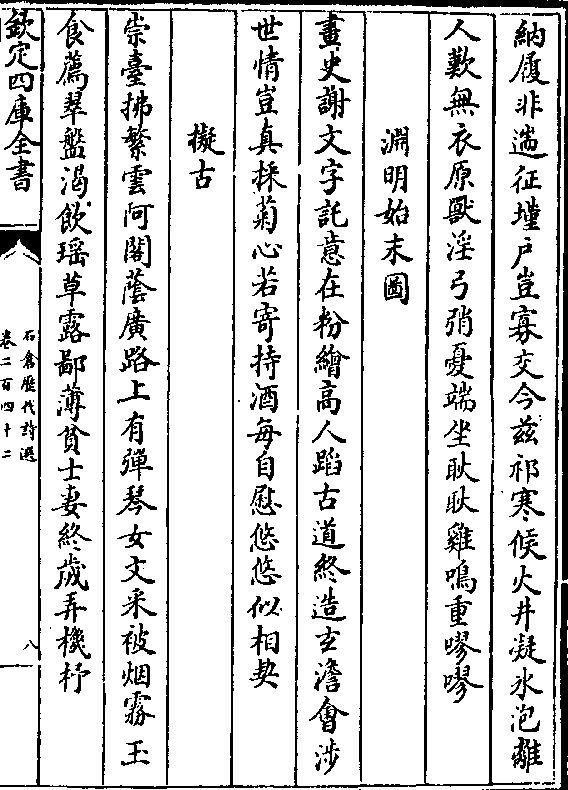 納履非遄征墐戶豈寡交今茲祁寒候火井凝水泡離
人歎無衣原獸淫弓弰憂端坐耿耿雞鳴重嘐嘐
淵明始末圖
畫史謝文字託意在粉繪高人蹈古道終造玄澹會涉
世情豈真採菊心若寄持酒每自慰悠悠似相契
擬古
崇臺拂繁雲阿閣蔭廣路上有彈琴女文采被烟霧玉
食薦翠盤渴飲瑶草露鄙薄貧士妻終歲弄機杼
欽定四庫全書
石倉歷代詩選
卷二百四十二
八